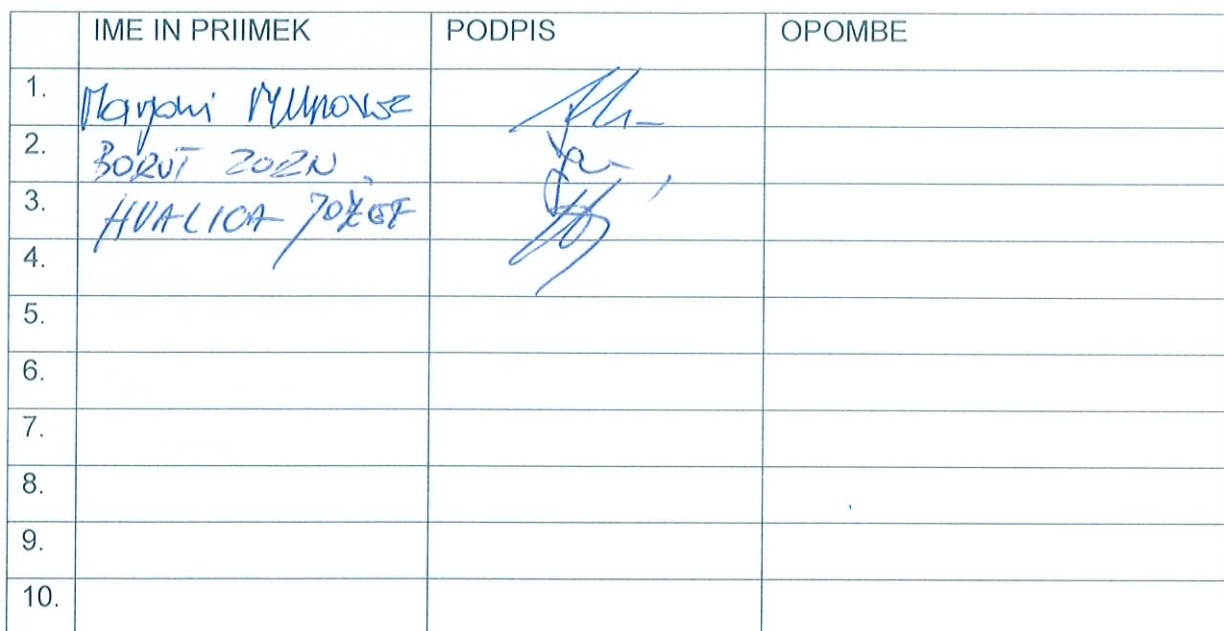 IME IN PRIIMEK PODPIS OPOMBE
1.
2. BORUT ZORN
3. HVALICA JOŽEF
4.
5.
6.
7.
8.
9.
10.